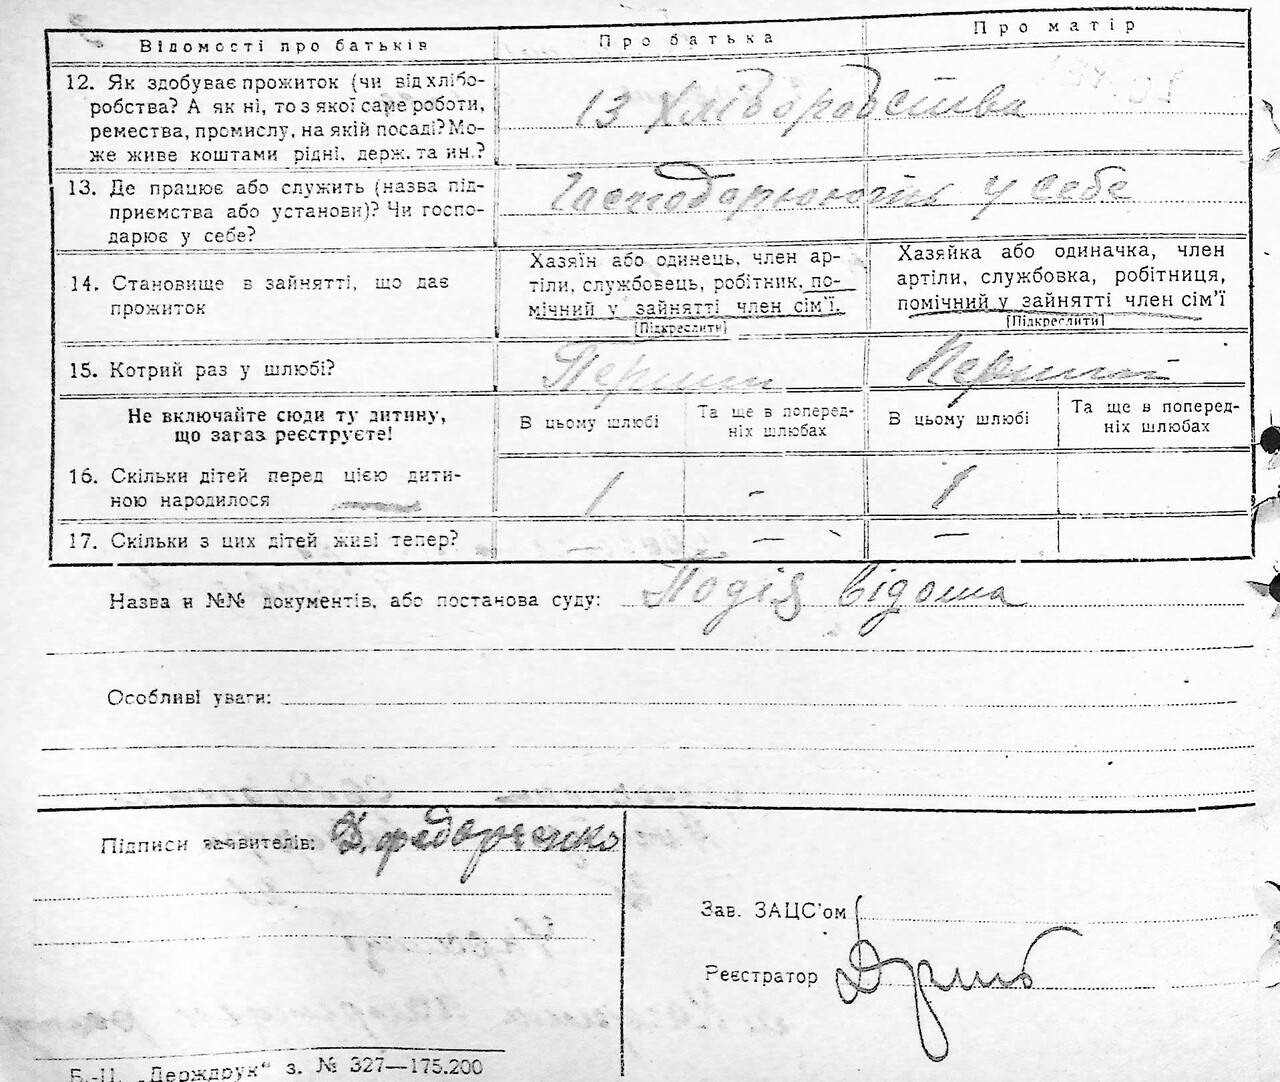 Відомості про батьків
Про батька
Про матір
12. Як здобуває прожиток (чи від хлібо-
робства? А як ні, то з якої саме роботи,
ремества, промислу, на якій посаді? Мо-
же живе коштами рідні, держ. та ин.?
Із хліборобства
13. Де працює або служить (назва під-
приємства або установи)? Чи госпо-
дарює у себе?
Господарюють у себе
14. Становище в зайнятті, що дає
прожиток
Хазяїн або одинець, член ар-
тіли, службовець, робітник, по-
мічний у зайнятті член сім'ї.
[Підкреслити]
Хазяйка або одиначка, член
артіли, службовка, робітниця,
помічний у зайнятті член сім'ї
[Підкреслити]
15. Котрий раз у шлюбі?
Перший
Перший
Не включайте сюди ту дитину,
що загаз реєструєте!
В цьому шлюбі
Та ще в поперед-
ніх шлюбах
В цьому шлюбі
Та ще в поперед-
ніх шлюбах
16. Скільки дітей перед цією дити-
ною народилося
1
-
1
17. Скільки з цих дітей живі тепер?
—
—
Назва и №№ документів, або постанова суду: Подія відома
Особливі уваги:
Підписи заявителів: Д. Федоренко
Зав. ЗАЦС'ом
Реєстратор
Б.-Ц. „Держдрук" з. № 327—175.200